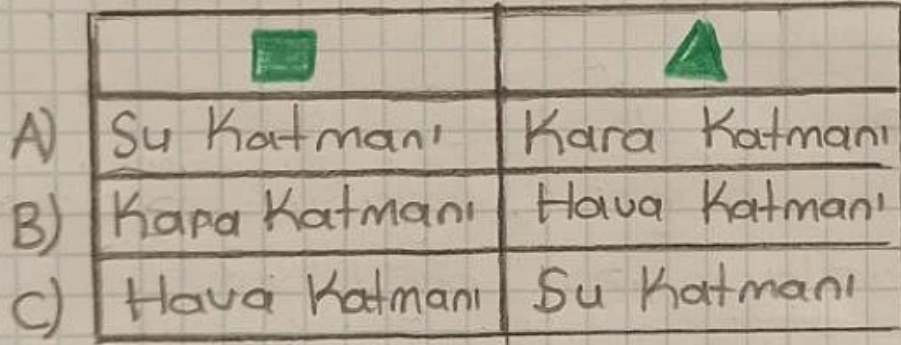 A) Su Katmanı Kara Katmanı
B) Kapa Katmanı Hava Katmanı
C) Hava Katmanı Su Katmanı